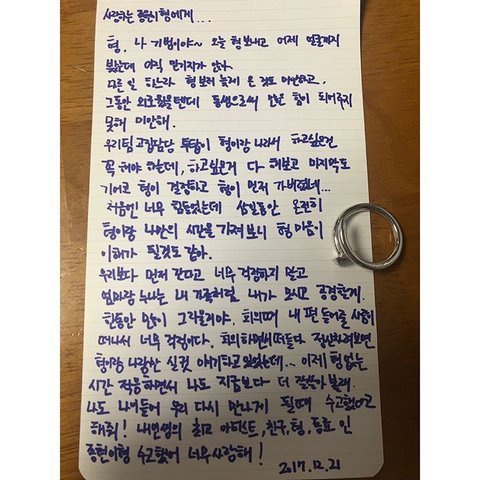 사랑하는 종현이형에게...
형, 나 기범이야~ 오늘 형 보내고 어제 얼굴까지
봤는데 아직 믿기지가 않아.
다른 일 하느라 형 보러 늦게 온 것도 미안하고,
그동안 외로웠을텐데 동생으로써 많은 힘이 되어주지
못해 미안해.
우리팀 고집담당 투탑이 형이랑 나라서 하고싶은건
꼭 해야 하는데, 하고싶은거 다 해보고 마지막도
기어코 형이 결정하고 형이 먼저 가버렸네...
처음엔 너무 힘들었는데 삼일동안 온전히
형이랑 나만의 시간을 가져보니 형 마음이
이해가 될것도 같아.
우리보다 먼저 간다고 너무 걱정하지 말고
엄마랑 누나는 내 가족처럼 내가 모시고 존경할게.
한동안 많이 그리울거야, 회의때 내 편 들어줄 사람이
떠나서 너무 걱정이다. 회의하면서 떠들다 정신차려보면
형이랑 나랑만 실컷 얘기하고 있었는데... 이제 형 없는
시간 적응하면서 나도 지금보다 더 잘살아볼래.
나도 나이들어 우리 다시 만나게 될때 수고했다고
해줘! 내 인생의 최고 아티스트, 친구, 형, 동료 인
종현이형 수고했어 너무 사랑해!
2017.12.21